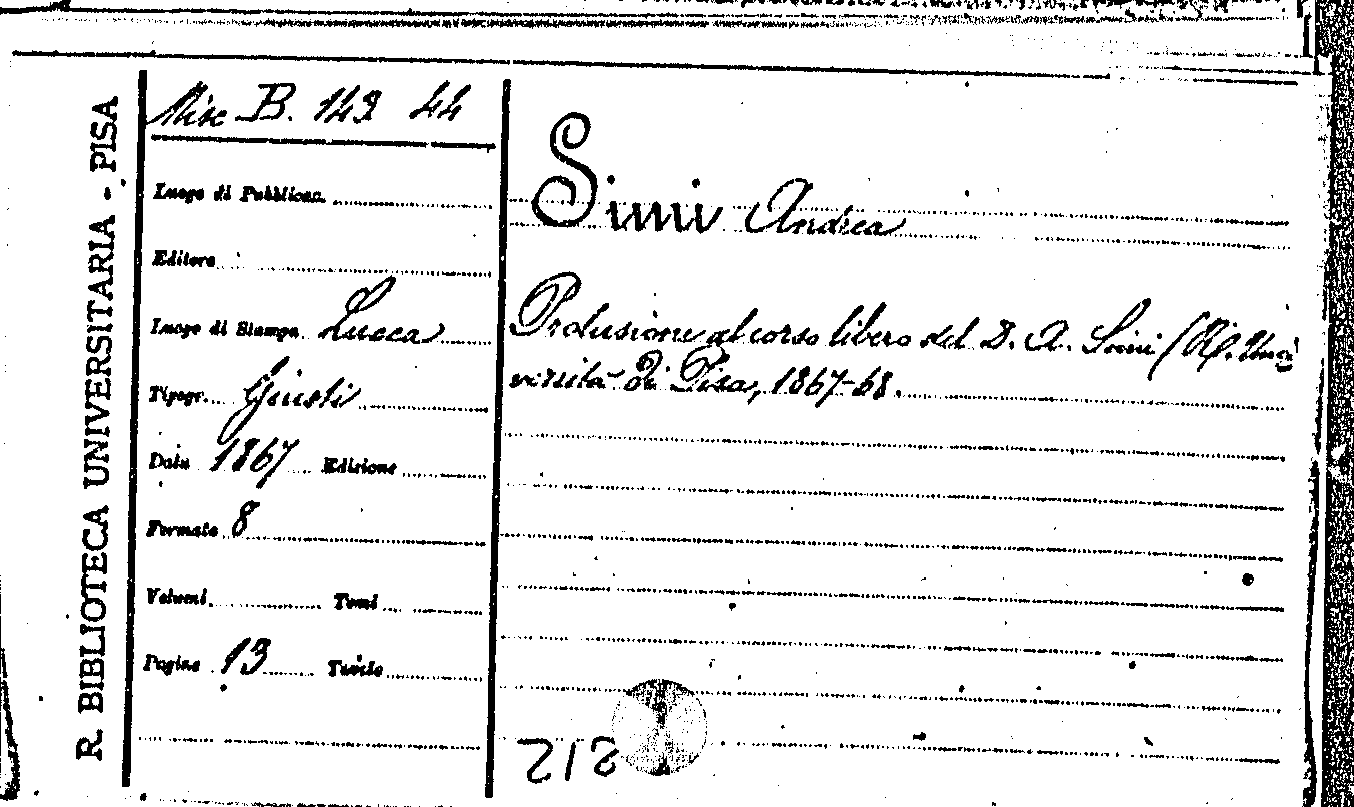 R. BIBLIOTECA UNIVERSITARIA - PISA
Misc B. 142 44
Luogo di Pubblicaz.
Editore
Luogo di Stampa Lucca
Tipogr. Giusti
Data 1867 Edizione
Formato 8
Volumi Tomi
Pagine 13 Tavole
Simi Andrea
Prolusione al corso libero del D. A. Simi (R. Uni
versità di Pisa, 1867-68.
212